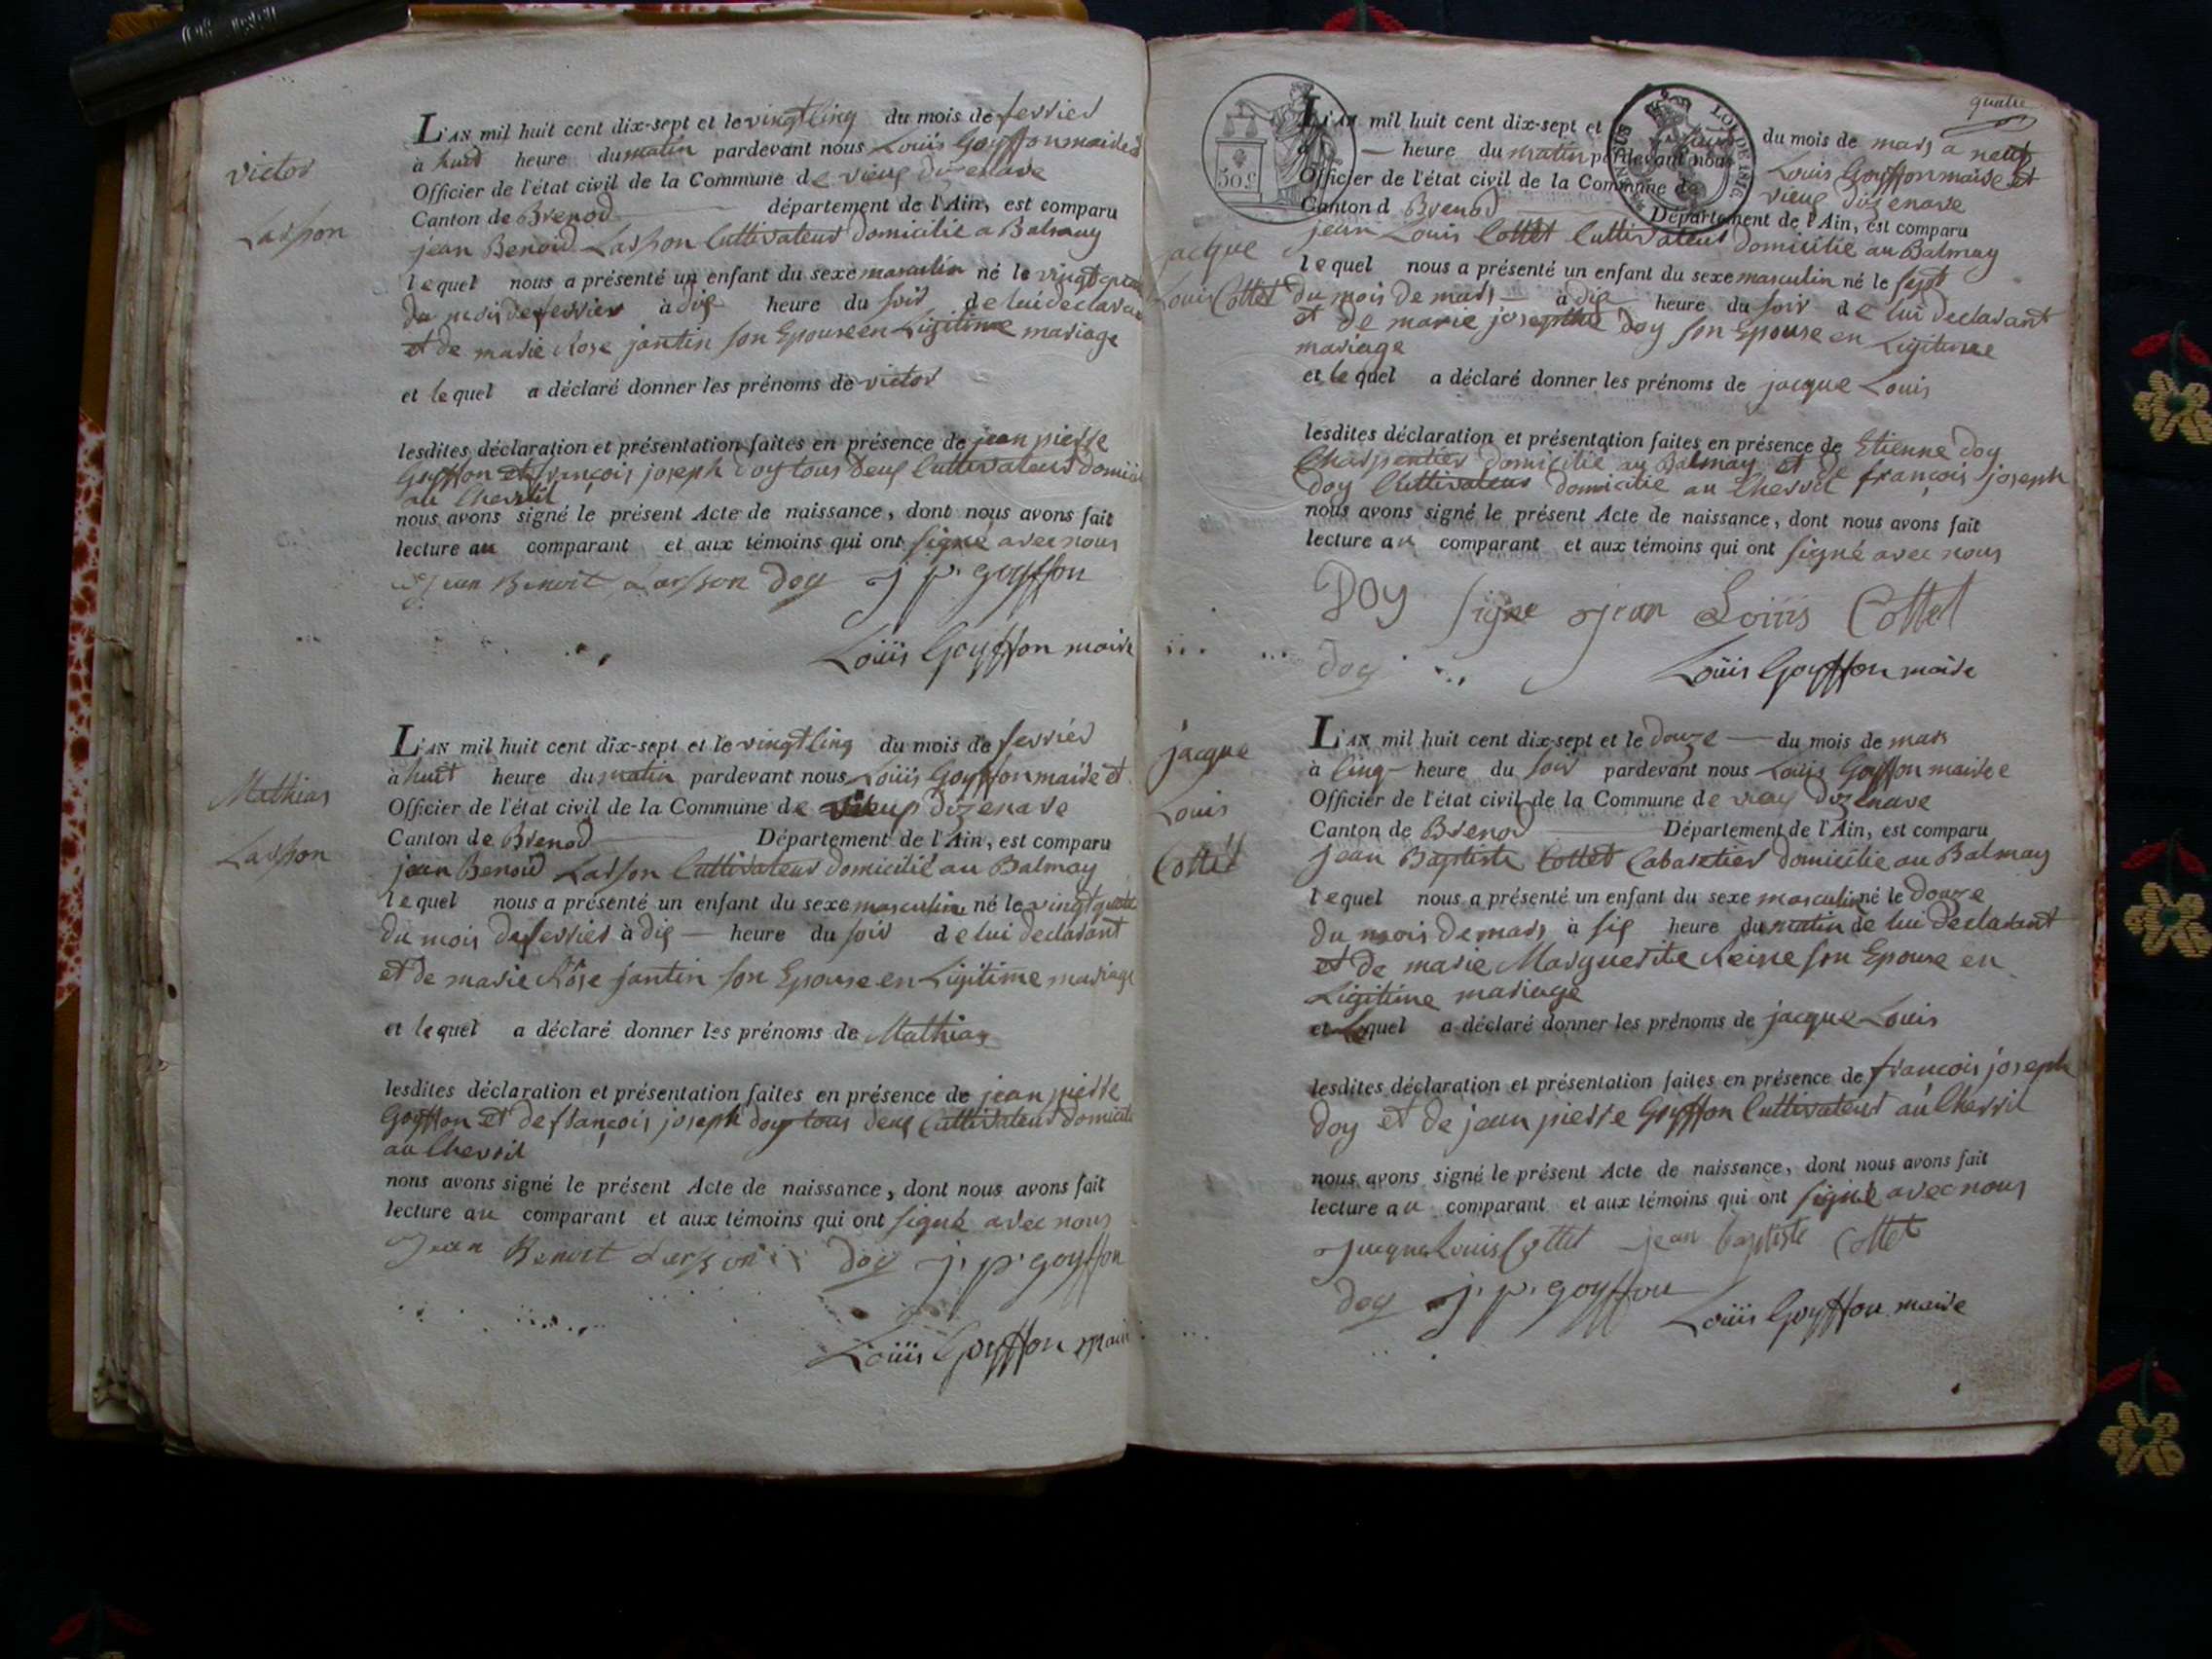 victor
Larson
L'AN mil huit cent dix-sept et le vingt cinq du mois de fevrier
à huit heure du matin pardevant nous Louis Goyffon maire et
Officier de l'état civil de la Commune de vieux dizenave
Canton de Brenod département de l'Ain, est comparu
jean Benoid Larson Cultivateur domicilié a Balmay
lequel nous a présenté un enfant du sexe masculin né le vingt quatre
du mois de fevrier à dix heure du soir de lui declarant
et de marie Rose jantin son Epouse en Ligitime mariage
et lequel a déclaré donner les prénoms de victor
lesdites déclaration et présentation faites en présence de jean pierre
Goyffon et françois joseph doy tous deux Cultivateurs domicilié
au Chevril
nous avons signé le présent Acte de naissance, dont nous avons fait
lecture au comparant et aux témoins qui ont signé avec nous
Jean Benoit Larsson doy j. p. goyffon
Loüis Goyffon maire
Mathias
Larson
L'AN mil huit cent dix-sept et le vingt cinq du mois de fevrier
à huit heure du matin pardevant nous Loüis Goyffon maire et
Officier de l'état civil de la Commune de vieux dizenave
Canton de Brenod Département de l'Ain, est comparu
jean Benoid Larson Cultivateur domicilié au Balmay
lequel nous a présenté un enfant du sexe masculin né le vingt quatre
du mois de fevrier à dix heure du soir de lui declarant
et de marie Rose jantin son Epouse en Ligitime mariage
et lequel a déclaré donner les prénoms de Mathias
lesdites déclaration et présentation faites en présence de jean pierre
Goyffon et de françois joseph doy tous deux Cultivateur domicilié
au Chevril
nous avons signé le présent Acte de naissance, dont nous avons fait
lecture au comparant et aux témoins qui ont signé avec nous
Jean Benoit Larsson doy j. p. goyffon
Loüis Goyffon maire
quatre
50 c
LOI DE 1816
jacque
Louis Cottet
L'AN mil huit cent dix-sept et du mois de mars a neuf
heure du matin pardevant nous Louis Goyffon maire et
Officier de l'état civil de la Commune de vieux dizenave
Canton d Brenod Département de l'Ain, est comparu
jean Louis Cottet Cultivateur domicilié au Balmay
lequel nous a présenté un enfant du sexe masculin né le sept
du mois de mars à dix heure du soir de lui declarant
et de marie josepthe doy son Epouse en Ligitime
mariage
et lequel a déclaré donner les prénoms de jacque Louis
lesdites déclaration et présentation faites en présence de Etienne doy
Charpentier domicilié au Balmay et de françois joseph
doy Cultivateur domicilié au Chevril
nous avons signé le présent Acte de naissance, dont nous avons fait
lecture au comparant et aux témoins qui ont signé avec nous
Doy signe jean Louis Cottet
doy Loüis Goyffon maire
jacque
Louis
Cottét
L'AN mil huit cent dix-sept et le douze du mois de mars
à cinq heure du soir pardevant nous Louis Goyffon maire e
Officier de l'état civil de la Commune de vieux dizenave
Canton de Brenod Département de l'Ain, est comparu
jean Baptiste Cottet Cabaretier domicilié au Balmay
lequel nous a présenté un enfant du sexe masculin né le douze
du mois de mars à six heure du matin de lui declarant
et de marie Marguerite Reine son Epouse en
Ligitime mariage
et lequel a déclaré donner les prénoms de jacque Louis
lesdites déclaration et présentation faites en présence de francois joseph
doy et de jean pierre Goyffon Cultivateur au Chevril
nous avons signé le présent Acte de naissance, dont nous avons fait
lecture au comparant et aux témoins qui ont signé avec nous
Jacque Louis Cottet jean baptiste Cottet
doy j. p. goyffon Loüis Goyffon maire